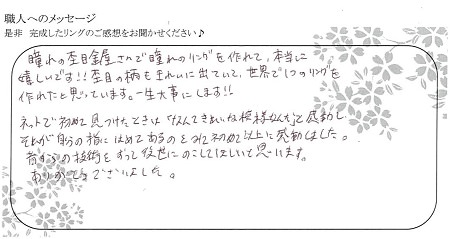 職人へのメッセージ
是非 完成したリングのご感想をお聞かせください♪
憧れの杢目金屋さんで憧れのリングを作れて、本当に
嬉しいです!!杢目の柄もきれいに出ていて、世界で1つのリングを
作れたと思っています。一生大事にします!!
ネットで初めて見つけたときは「なんてきれいな模様なんだ」と感動し、
それが自分の指にはめてあるのをみて初めて以上に感動しました。
昔からの技術をずっと後世にのこしてほしいと思います。
ありがとうございました。